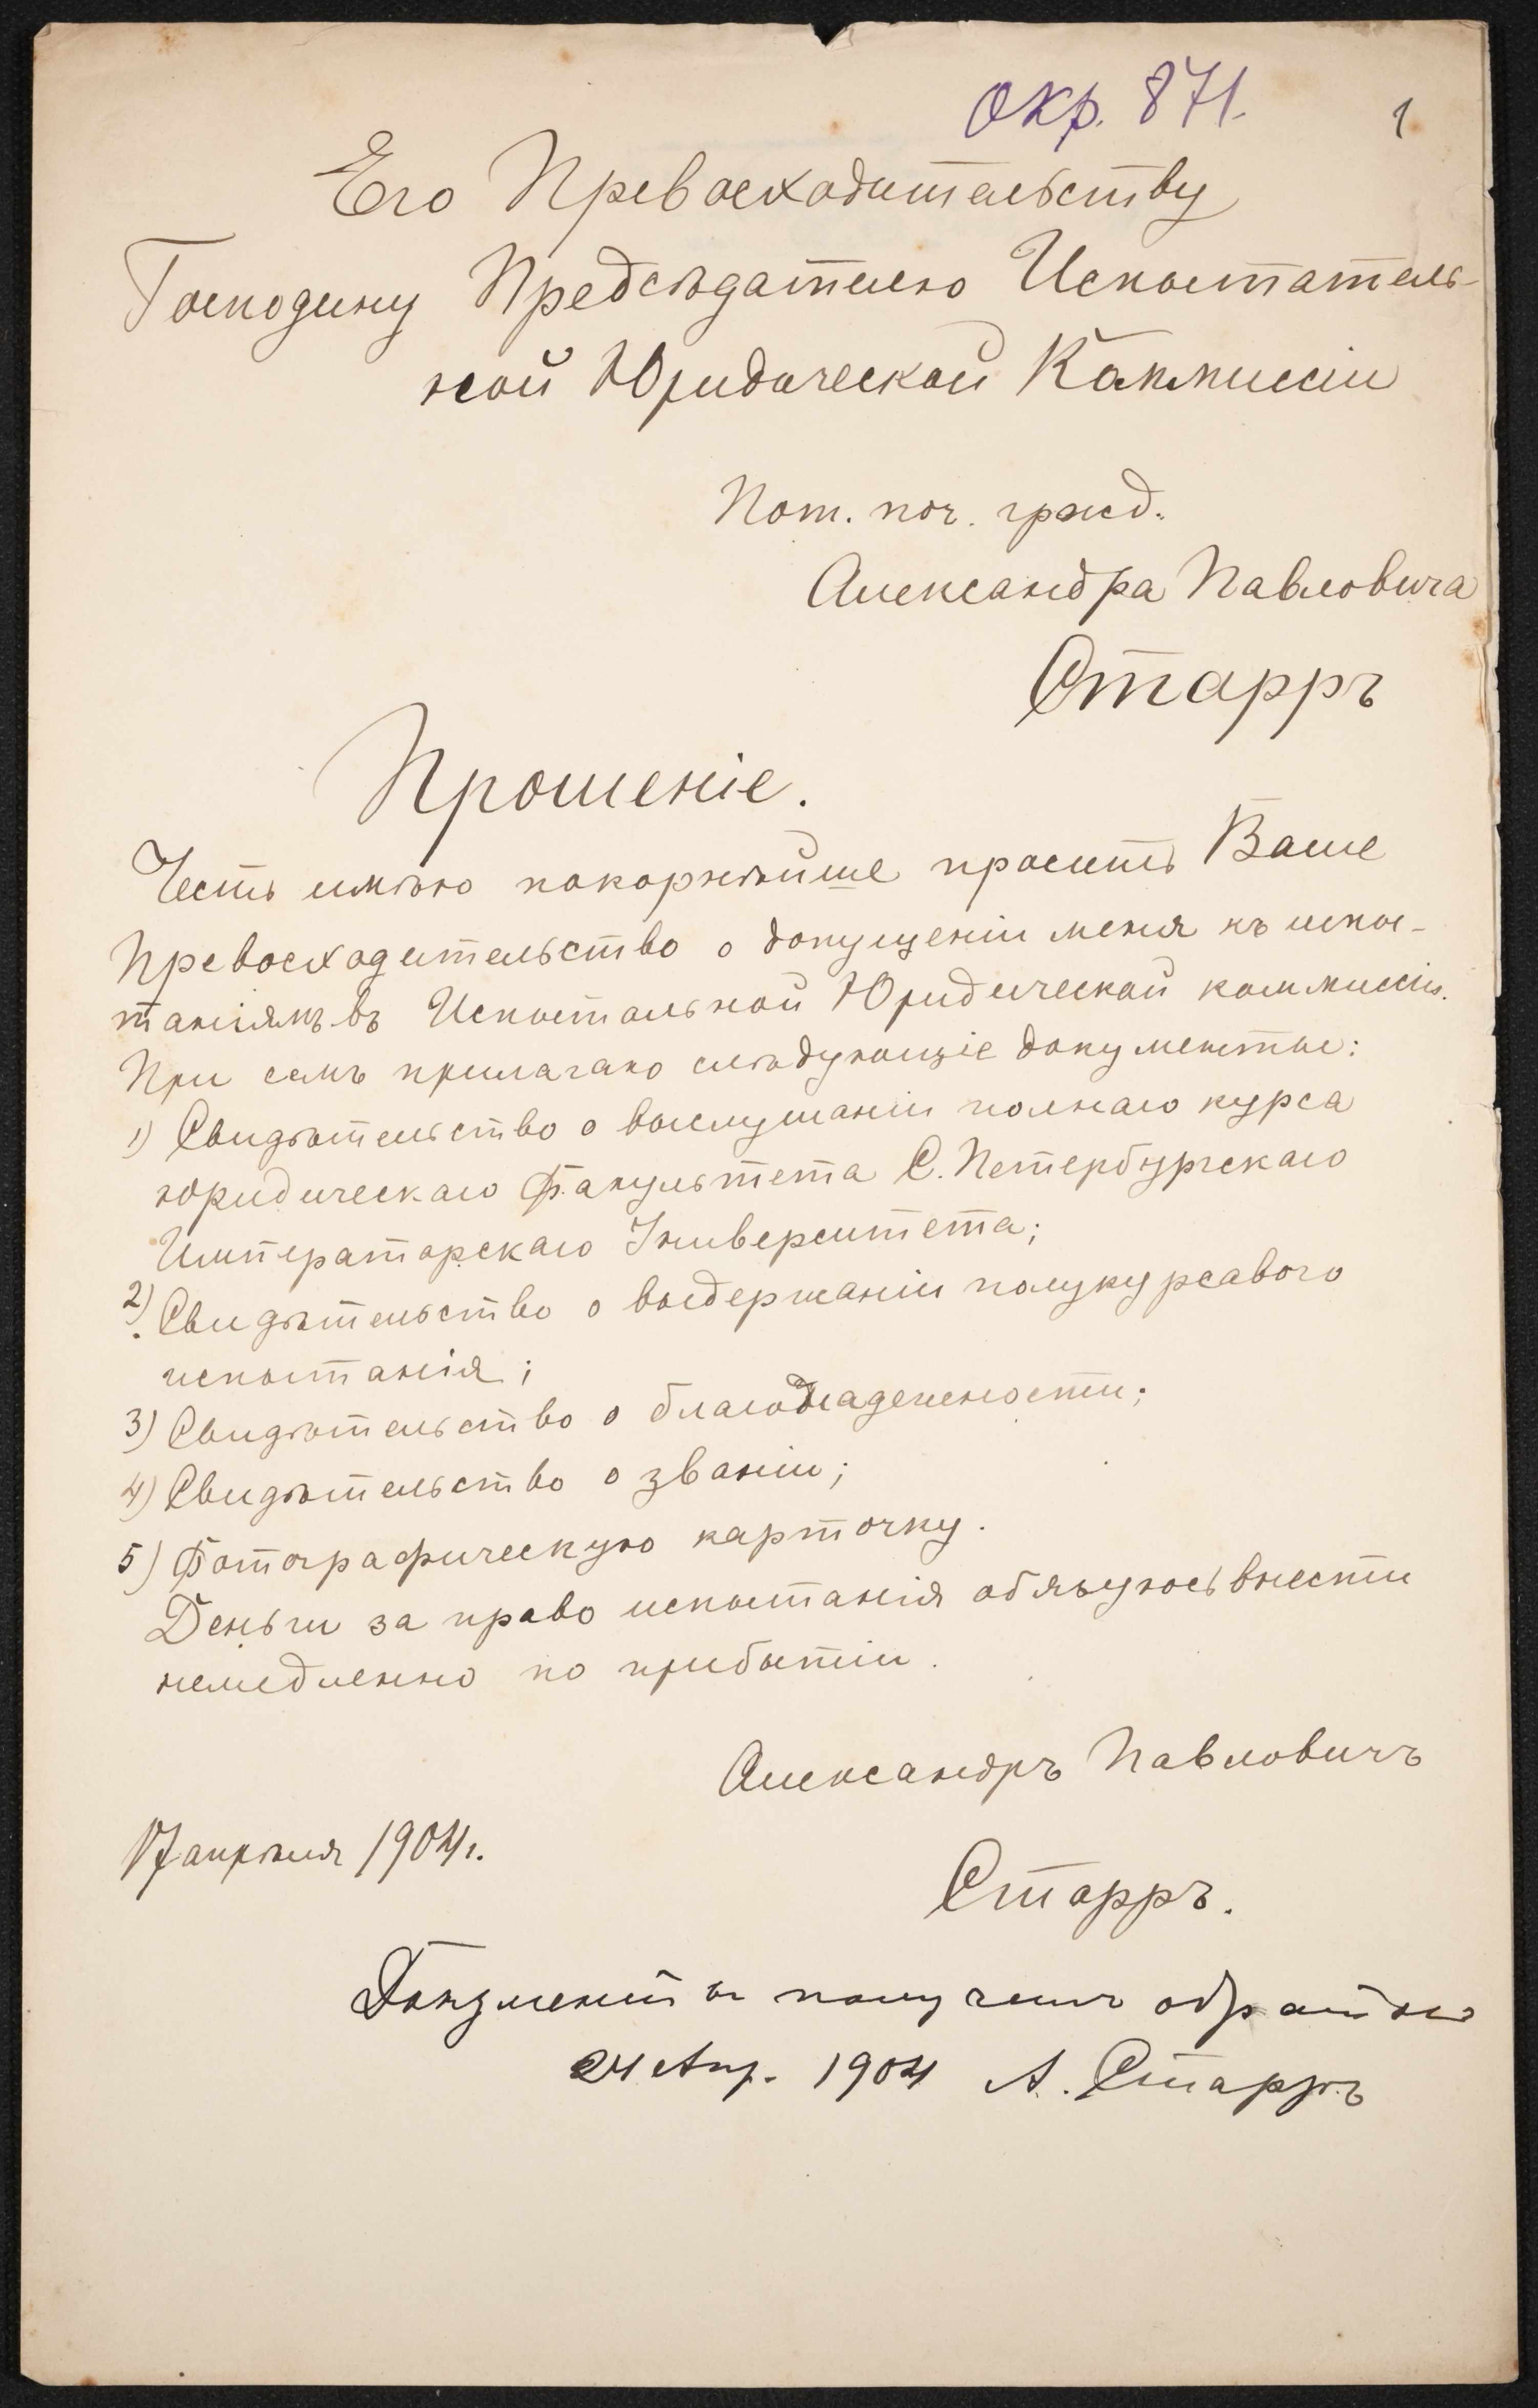 окр. 871.
1
Его Превосходительству
Господину Предсѣдателю Испытатель-
ной Юридической Коммиссіи
Пот. поч. гражд.
Александра Павловича
Старръ
Прошеніе.
Честь имѣю покорнѣйше просить Ваше
Превосходительство о допущеніи меня къ испы-
таніямъ въ Испытальной Юридической коммиссіи.
При семъ прилагаю слѣдующіе документы:
1) Свидѣтельство о выслушаніи полнаго курса
юридическаго Факультета С. Петербургскаго
Императорскаго Университета;
2) Свидѣтельство о выдержаніи полукурсавого
испытанія;
3) Свидѣтельство о благонадежности;
4) Свидѣтельство о званіи;
5) Фотографическую карточку.
Деньги за право испытанія обязуюсь внести
немедленно по прибытіи.
Александръ Павловичъ
17 апрѣля 1904 г.
Старръ.
Документы получилъ обратно
24 Апр. 1904 А. Старръ